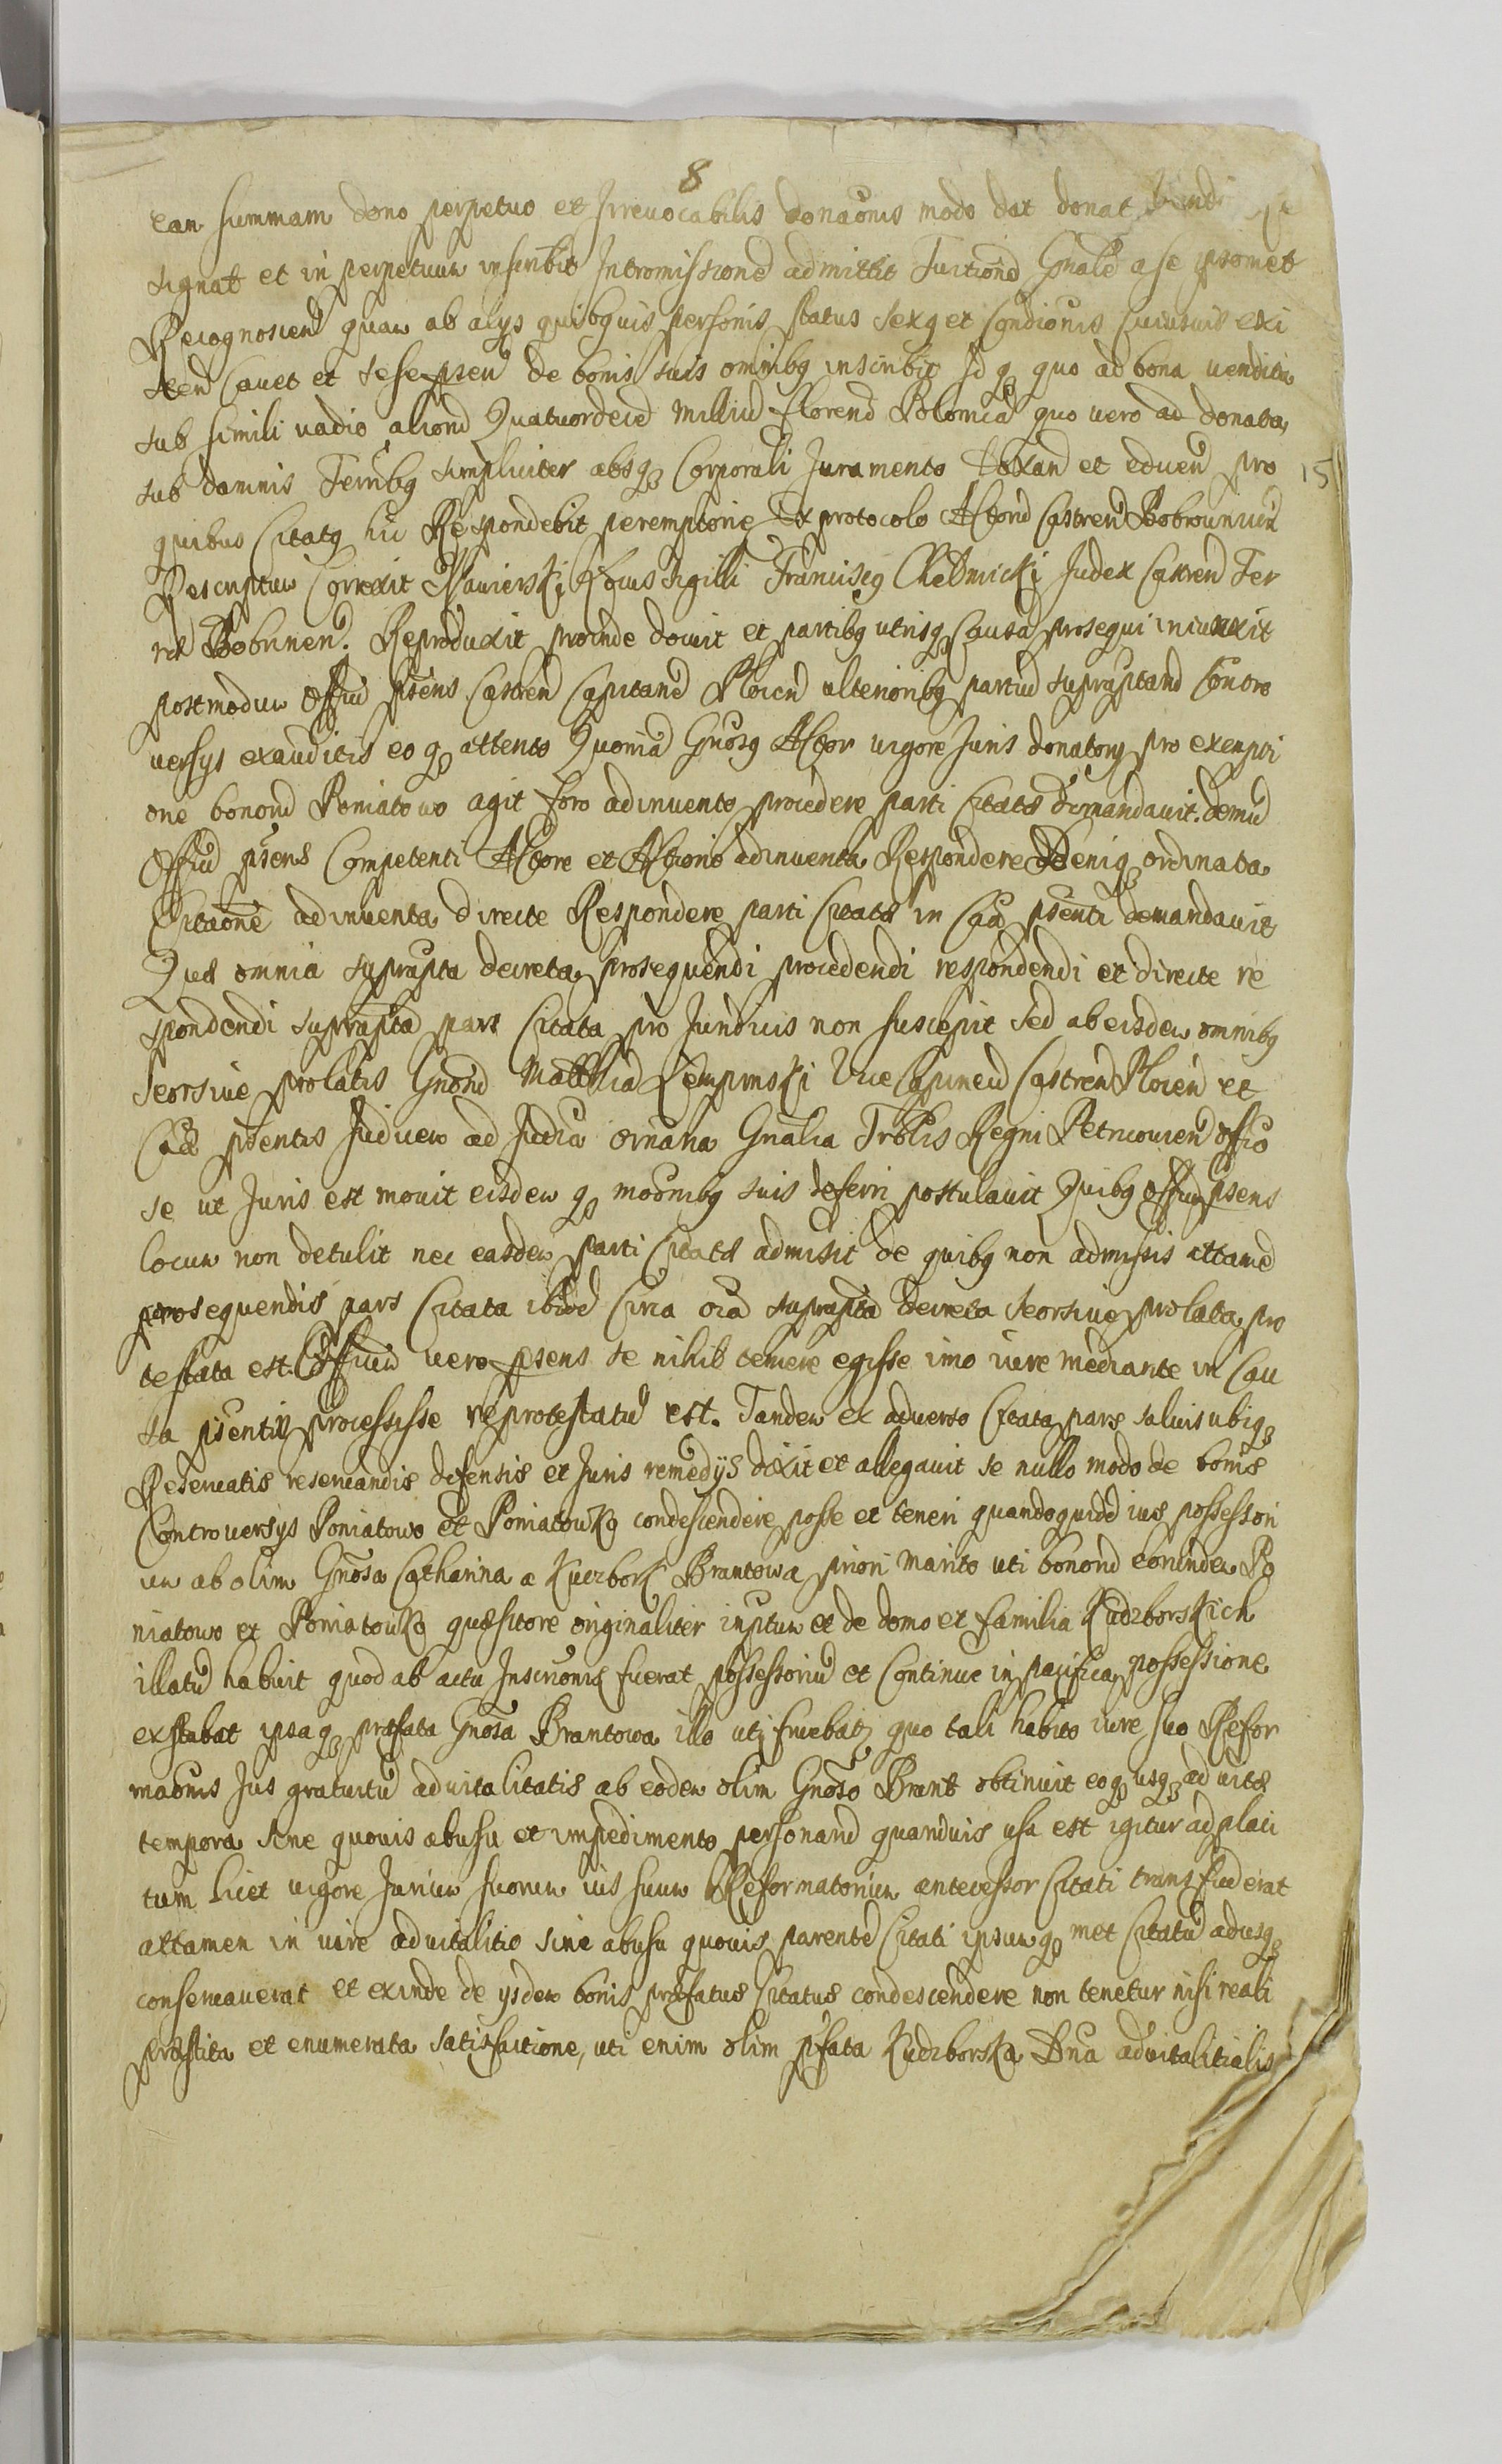 8
ean summam dono perpetuo et Irrevocabilis donaōnis modo dat donat
signat et in perpetuum inscribit Intromissioned admittit Tuitioned Gnalē a se ipsomet
Recognoscend quam ab alys quibquis personis status sexq et Condiōnis Cuiusvis exi
stend Cavet et sese psen de bonis suis omnibq inscribit Id q quo ad bona vendita
sub simili vadio aliond Quatuordecid Milliū florend Polonica quo vero ad donata,
15
sub damnis Terribq simpliciter absq Corporali Juramento taxand et eduend pro
quibus Citatq hic Respondebit peremptorie Ex protocolo Actond Castrend Bobrownicen
Descriptum Correxit Locus Sigilli Franciscq Chełmicki Judex Castrend Ter
rae Dobrinen. Reproduxit proinde docuit et partibq utrisq Causā prosequi iniunxit
postmodum Offiū psens Castren Capitane Plocen ulterioribq partiū suprapitand Contro
versys exauditis eo q attento Quoniā Gnosq Actor vigore Juris donatory pro exempti
one bonond Poniatowo agit foro adinvento procedere parti Citatæ demandavit. demū
Offiū psens Competenti Actore et Actiono adinventa Respondere Deniq ordinata
Citaōne adinventa directe Respondere parti Citatæ in Cāa psenti demandavit
Quæ omnia suprapta decreta prosequendi procedendi respondendi et directe re
spondendi suprapta pars Citata pro Juridicis non suscepit sed ab eisdem omnibq
seorsive prolatis Gnond Matthiā Lempinski Vice Capineū Castren Plocen et
Cæ psentis Judicem ad Judia ornaria Gnalia Trblis Regni Petricovien offio
se ut Juris est movit eisdem q moōnibq suis deferri postulavit Quibq offium psens
locum non detulit nec easdem parti Citatæ admisit de quibq non admissis attamē
prosequendis pars Citata ibid Circa oīa suprapta decreta seorsive prolata pro
testata est. Offium vero psens se nihil temere egisse imo iure mediante in Cau
sa psenti processisse reprotestatū est. Tandem ex adverso Citata pars salvis ubiq
Reservatis reservandis defensis et Juris remedijs dixit et allegavit se nullo modo de bonis
Controversys Poniatowo et Poniatowko condescendere posse et teneri quandoquidē ius possessori
um ab olim Gnosa Catharina a Kuczbork Brantowa priori Marito uti bonond eorundem Po
niatowo et Poniatowko quæsitore originaliter inptum et de domo et familia Kudzborskich
illatū habuit quod ab actu Inscriōnis fuerat possessoriū et Continue in pacifica possessione
exstabat ipsaq præfata Gnosa Brantowa illo uti fruebatq quo tali habito iure suo Refor
maōnis Jus gratuitū advitalitatis ab eodem olim Gnoso Brant obtinuit eoq usq ad vitæ
tempora sine quovis abusu et impedimento personand quandvis usa est igitur ad placi
tum licet vigore Jurium suorum ius suum Reformatorium antecessor Citati transfuderat
attamen in iure advitalitio sine abusu quovis parentē Citati ipsumq met Citatū adusq
conservaverat et exinde de ysdem bonis præfatus Citatus condescendere non tenetur nisi reali
præstita et enumerata satisfactione, uti enim olim pfata Kudzborska Dna advitalitialis